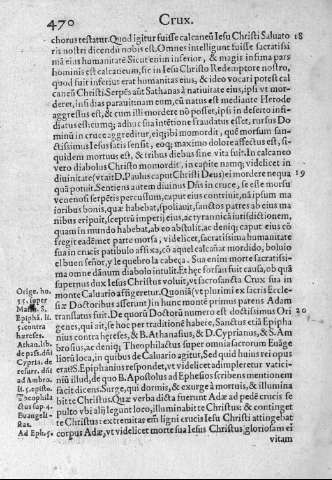 470 Crux.
chorus testatur. Quod igitur fuisse calcaneũ Iesu Christi Saluato 18
ris nostri dicendũ nobis est. Omnes intelligunt fuisse sacratissi
mã eius humanitatẽ Sicut enim inferior, & magis infima pars
hominis est calcaneum, sic in Iesu Christo Redemptore nostro,
quod fuit inferius erat humanitas eius, & ideo vocari potest cal
caneũ Christi. Serpẽs aũt Sathanas à natiuitate eius, ipsi vt mor
deret, insidias parauit nam eum, cũ natus est mediante Herode
aggressus est, & cum illi mordere nõ posset, ipsi in deserto insi
diatus est: cumq; adhuc sua intẽtione fraudatus esset, rursus Do
minũ in cruce aggreditur, eiq; ibi momordit, quẽ morsum san-
ctissimus Iesus satis sensit, eoq; maximo dolore affectus est, si-
quidem mortuus est, & tribus diebus sine vita fuit. In calcaneo
vero diabolus Christo momordit, in capite namq; videlicet in
diuinitate (vt ait D. Paulus caput Christi Deus) ei mordere nequa 19
quã potuit. Sentiens autem diuinus Dñs in cruce, se este morsu
venenosi serpẽtis percussum, caput eius contriuit, nã ipsum ma
ioribus bonis, quæ habebat, spoliauit, sanctos patres ab eius ma
nibus eripuit, sceptrũ imperij eius, ac tyrannicã iurisdictionem,
quam in mundo habebat, ab eo abstulit: ac deniq; caput eius cõ
fregit eadẽmet parte morsa, videlicet, sacratissima humanitate
sua in crucis patibulo affixa, cõ aquel calcañar mordido, boluio
el buen señor, y le quebro la cabeça. Sua enim morte sacratissi-
ma omne dãnum diabolo intulit. Et hęc forsan fuit causa, ob quã
supernus dux Iesus Christus voluit, vt sacrosancta Crux sua in
monte Caluario affigeretur. Quoniã (vt plurimi ex sacris Eccle-
siæ Doctoribus asserunt) in hunc montẽ primus parens Adam
translatus fuit. De quorũ Doctorũ numero est doctissimus Ori 20
genes, qui ait, se hoc per traditionẽ habere, Sanctus etiã Epipha
nius contra hęreses, & B. Athanasius, & D. Cyprianus, & S. Am
brosius, ac deniq; Theophilactus super omnia sacrorum Euãge
liorũ loca, in quibus de Caluario agitur, Sed quid huius rei opus
erat? S. Epiphanius respondet, vt videlicet adimpleretur vatici-
niũ illud, de quo B. Apostolus ad Ephesios scribens mentionem
facit dicens. Surge, qui dormis, & exurge à mortuis, & illumina
bit te Christus. Quæ verba dicta fuerunt Adæ ad pedẽ crucis se
pulto vbi alij legunt loco, illuminabit te Christus: & continget
te Christus: extremitas em̃ ligni crucis Iesu Christi attingebat
corpus Adæ, vt videlicet morte sua Iesus Christus gloriosam ei
vitam
Orige. ho.
35. super
Matth. &
Epiphã. li.
5. contra
hæreses.
Athan. lib.
de pass. dñi
Cypria. de
resurr. dñi
ad Ambro.
li. 5. epistol.
Theophila
ctus sup. 4.
Euangeli-
stas.
Ad Ephe. 5.